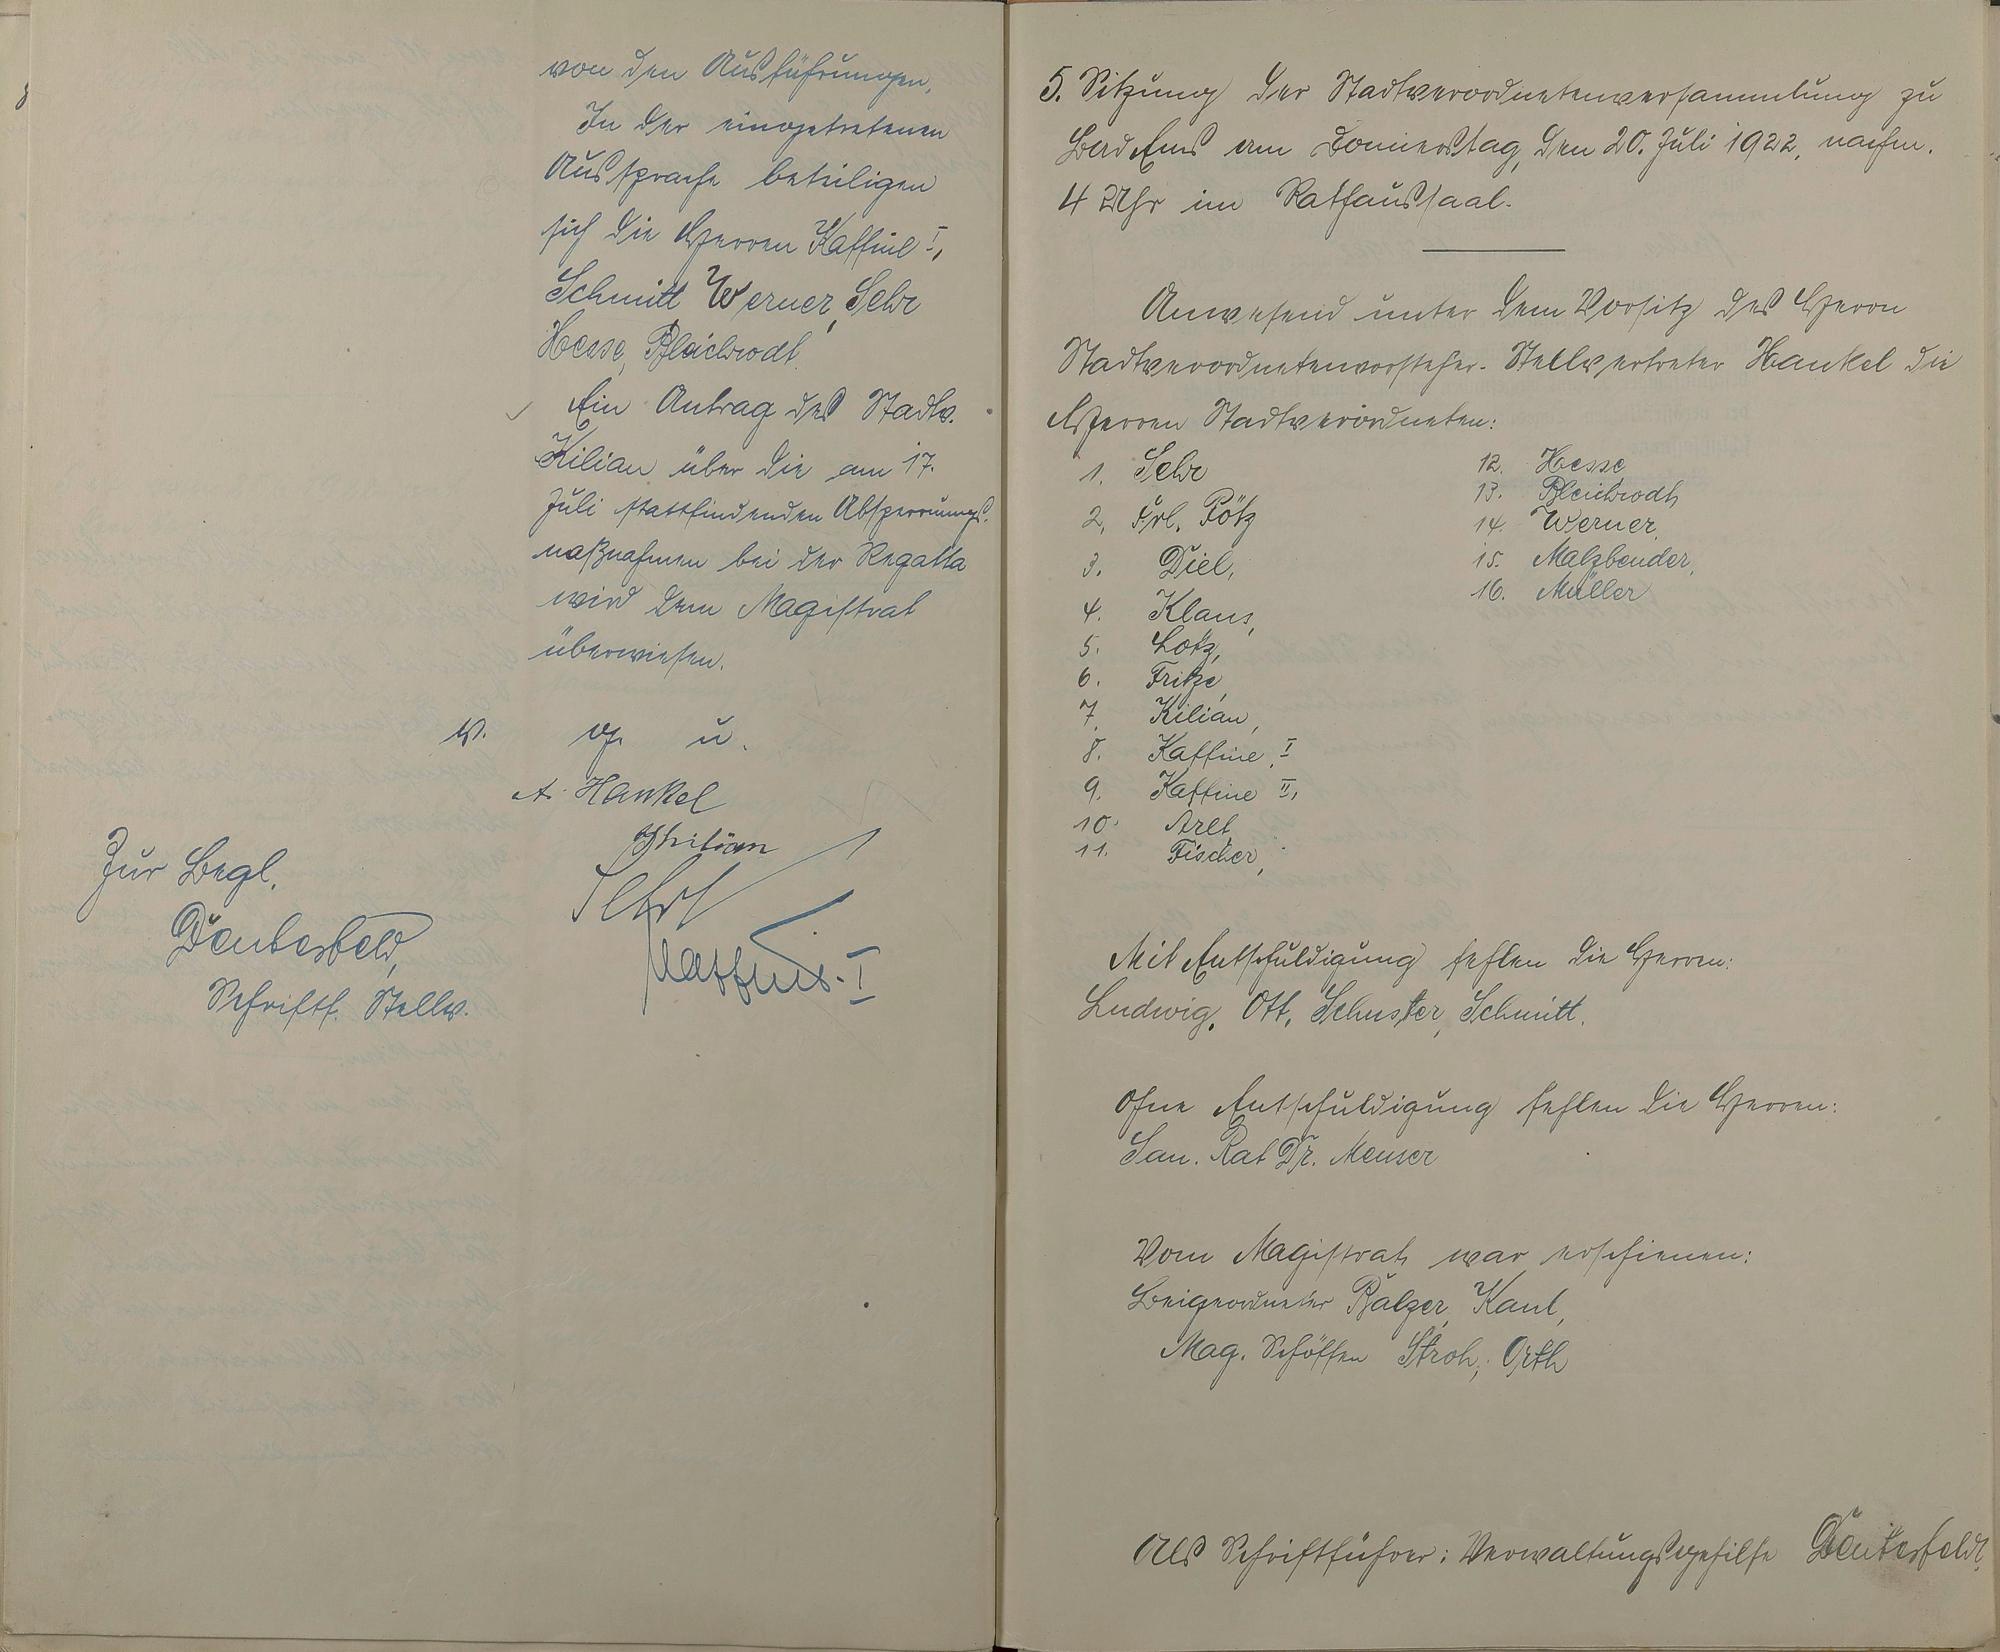 von den Ausführungen.
In der eingetretenen
Aussprache beteiligen
sich die Herren Kaffine I,
Schmitt Werner, Sehr
Hesse, Bleichrodt.
Ein Antrag des Stadtv.
Kilian über die am 17.
Juli stattfindenden Absperrungs-
maßnahmen bei der Regatta
wird dem Magistrat
überwiesen.
v. g. u.
A. Hankel
Kilian
Sehr
Kaffine I
Zur Begl.
Dentesfeld,
Schriftf. Stellv.
5. Sitzung der Stadtverordnetenversammlung zu
Bad Ems am Donnerstag, den 20. Juli 1922, nachm.
4 Uhr im Rathaussaal.
Anwesend unter dem Vorsitz des Herrn
Stadtverordnetenvorsteher-Stellvertreter Hankel die
Herren Stadtverordneten:
1. Sehr
2. Frl. Pötz
3. Diel,
4. Klaus,
5. Lotz,
6. Fritze,
7. Kilian,
8. Kaffine, I
9. Kaffine II,
10. Arlt,
11. Fischer,
12. Hesse
13. Bleichrodt,
14. Werner,
15. Malzbender,
16. Müller
Mit Entschuldigung fehlen die Herren:
Ludwig, Ott, Schuster, Schmitt.
Ohne Entschuldigung fehlen die Herren:
San. Rat Dr. Meuser
Vom Magistrat war erschienen:
Beigeordneter Balzer, Kaul,
Mag. Schöffen Stroh, Orth
Als Schriftführer: Verwaltungsgehilfe Dentesfeld.